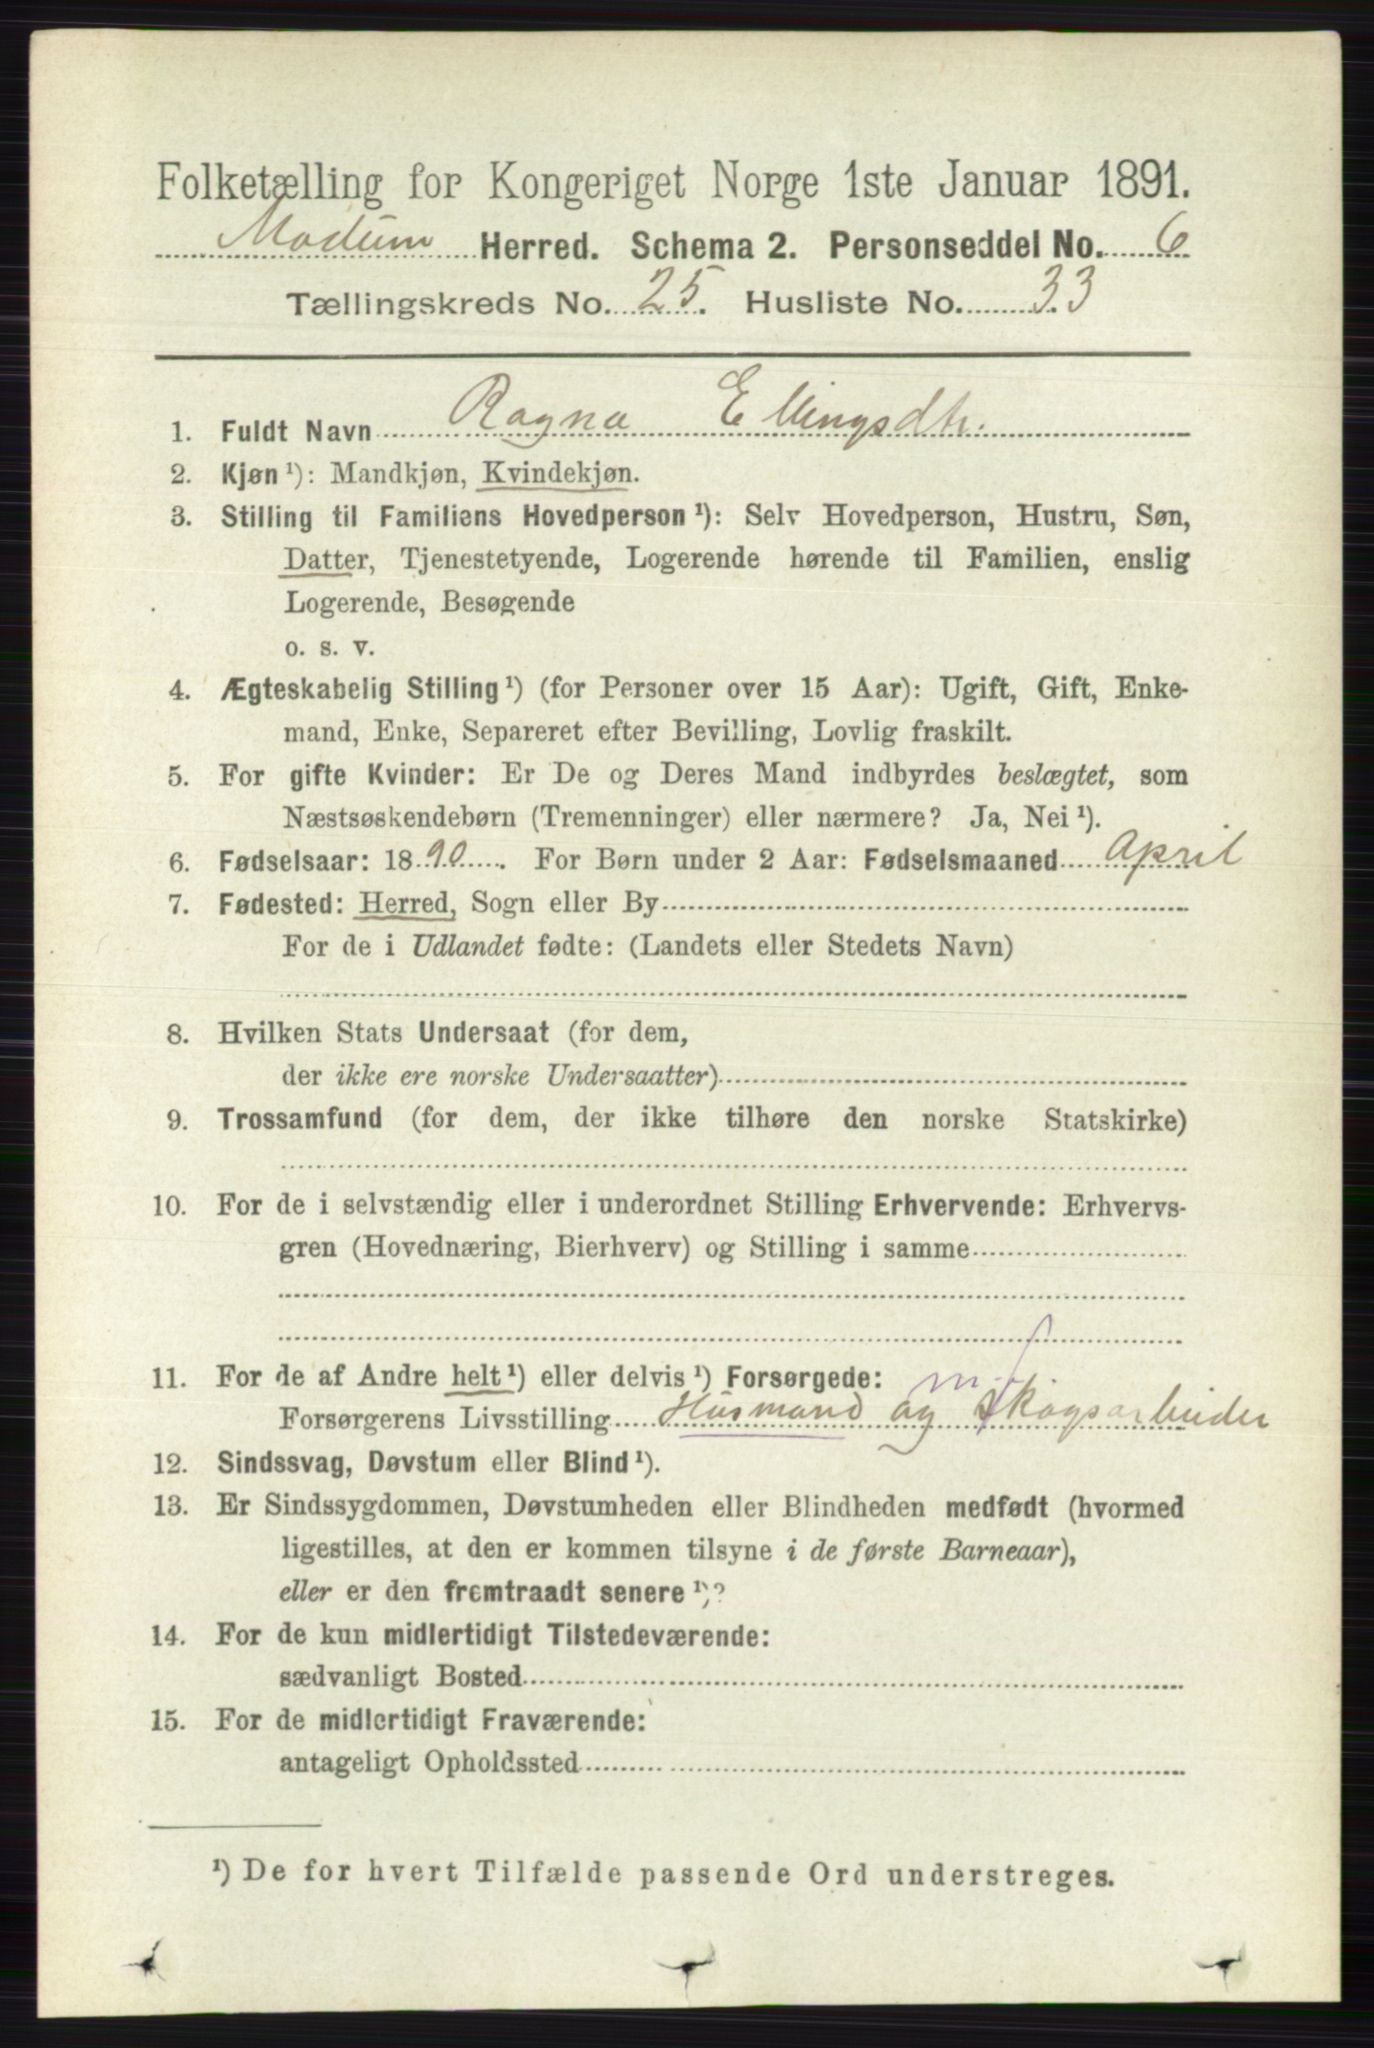 Folketælling for Kongeriget Norge 1ste Januar 1891.
Modum Herred. Schema 2. Personseddel No. 6
Tællingskreds No. 25. Husliste No. 33
1. Fuldt Navn Ragna Ellingsdtr.
2. Kjøn ¹): Mandkjøn, Kvindekjøn.
3. Stilling til Familiens Hovedperson ¹): Selv Hovedperson, Hustru, Søn,
Datter, Tjenestetyende, Logerende hørende til Familien, enslig
Logerende, Besøgende
o. s. v.
4. Ægteskabelig Stilling ¹) (for Personer over 15 Aar): Ugift, Gift, Enke-
mand, Enke, Separeret efter Bevilling, Lovlig fraskilt.
5. For gifte Kvinder: Er De og Deres Mand indbyrdes beslægtet, som
Næstsøskendebørn (Tremenninger) eller nærmere? Ja, Nei ¹).
6. Fødselsaar: 1890. For Børn under 2 Aar: Fødselsmaaned April
7. Fødested: Herred, Sogn eller By
For de i Udlandet fødte: (Landets eller Stedets Navn)
8. Hvilken Stats Undersaat (for dem,
der ikke ere norske Undersaatter)
9. Trossamfund (for dem, der ikke tilhøre den norske Statskirke)
10. For de i selvstændig eller i underordnet Stilling Erhvervende: Erhvervs-
gren (Hovednæring, Bierhverv) og Stilling i samme
11. For de af Andre helt ¹) eller delvis ¹) Forsørgede: mf
Forsørgerens Livsstilling Husmand og Skogsarbeider
12. Sindssvag, Døvstum eller Blind ¹).
13. Er Sindssygdommen, Døvstumheden eller Blindheden medfødt (hvormed
ligestilles, at den er kommen tilsyne i de første Barneaar),
eller er den fremtraadt senere ¹)?
14. For de kun midlertidigt Tilstedeværende:
sædvanligt Bosted
15. For de midlertidigt Fraværende:
antageligt Opholdssted
¹) De for hvert Tilfælde passende Ord understreges.